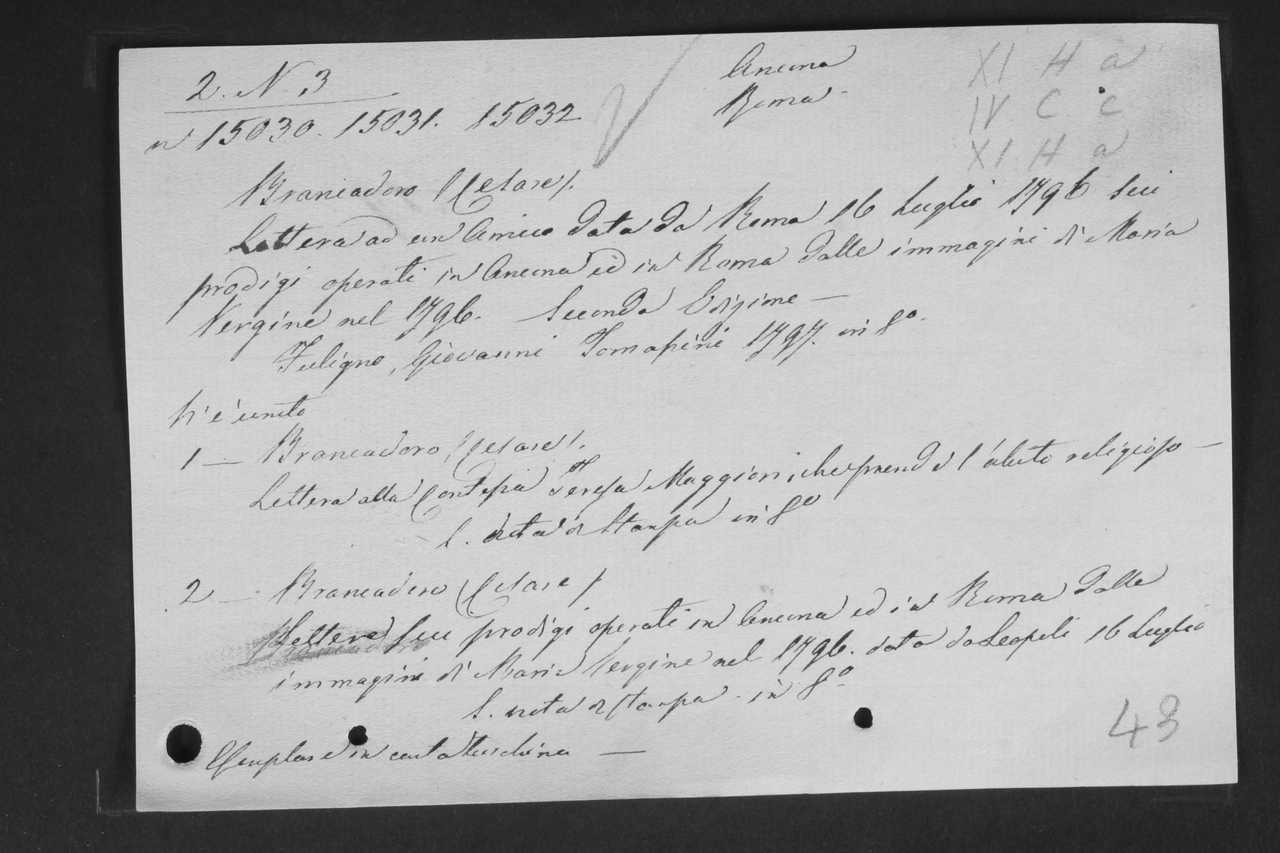 2. N. 3
Ancona
XI H a
n 15030. 15031. 15032
Roma
IV C. C
XI H a
Brancadoro (Cesare).
Lettera ad un Amico data da Roma 16 Luglio 1796 sui
prodigi operati in Ancona ed in Roma dalle immagini di Maria
Vergine nel 1796. Seconda Edizione —
Fuligno, Giovanni Tomassini 1797. in 8º.
V'è unito
1 — Brancadoro (Cesare).
Lettera alla Contessa Teresa Maggiori, che prende l'abito religioso —
S. nota di Stampa in 8º
2 — Brancadoro (Cesare)
Lettera sui prodigi operati in Ancona ed in Roma dalle
immagini di Maria Vergine nel 1796. data da Leopoli 16 Luglio
S. nota di stampa. in 8º
Esemplare in carta turchina —
43